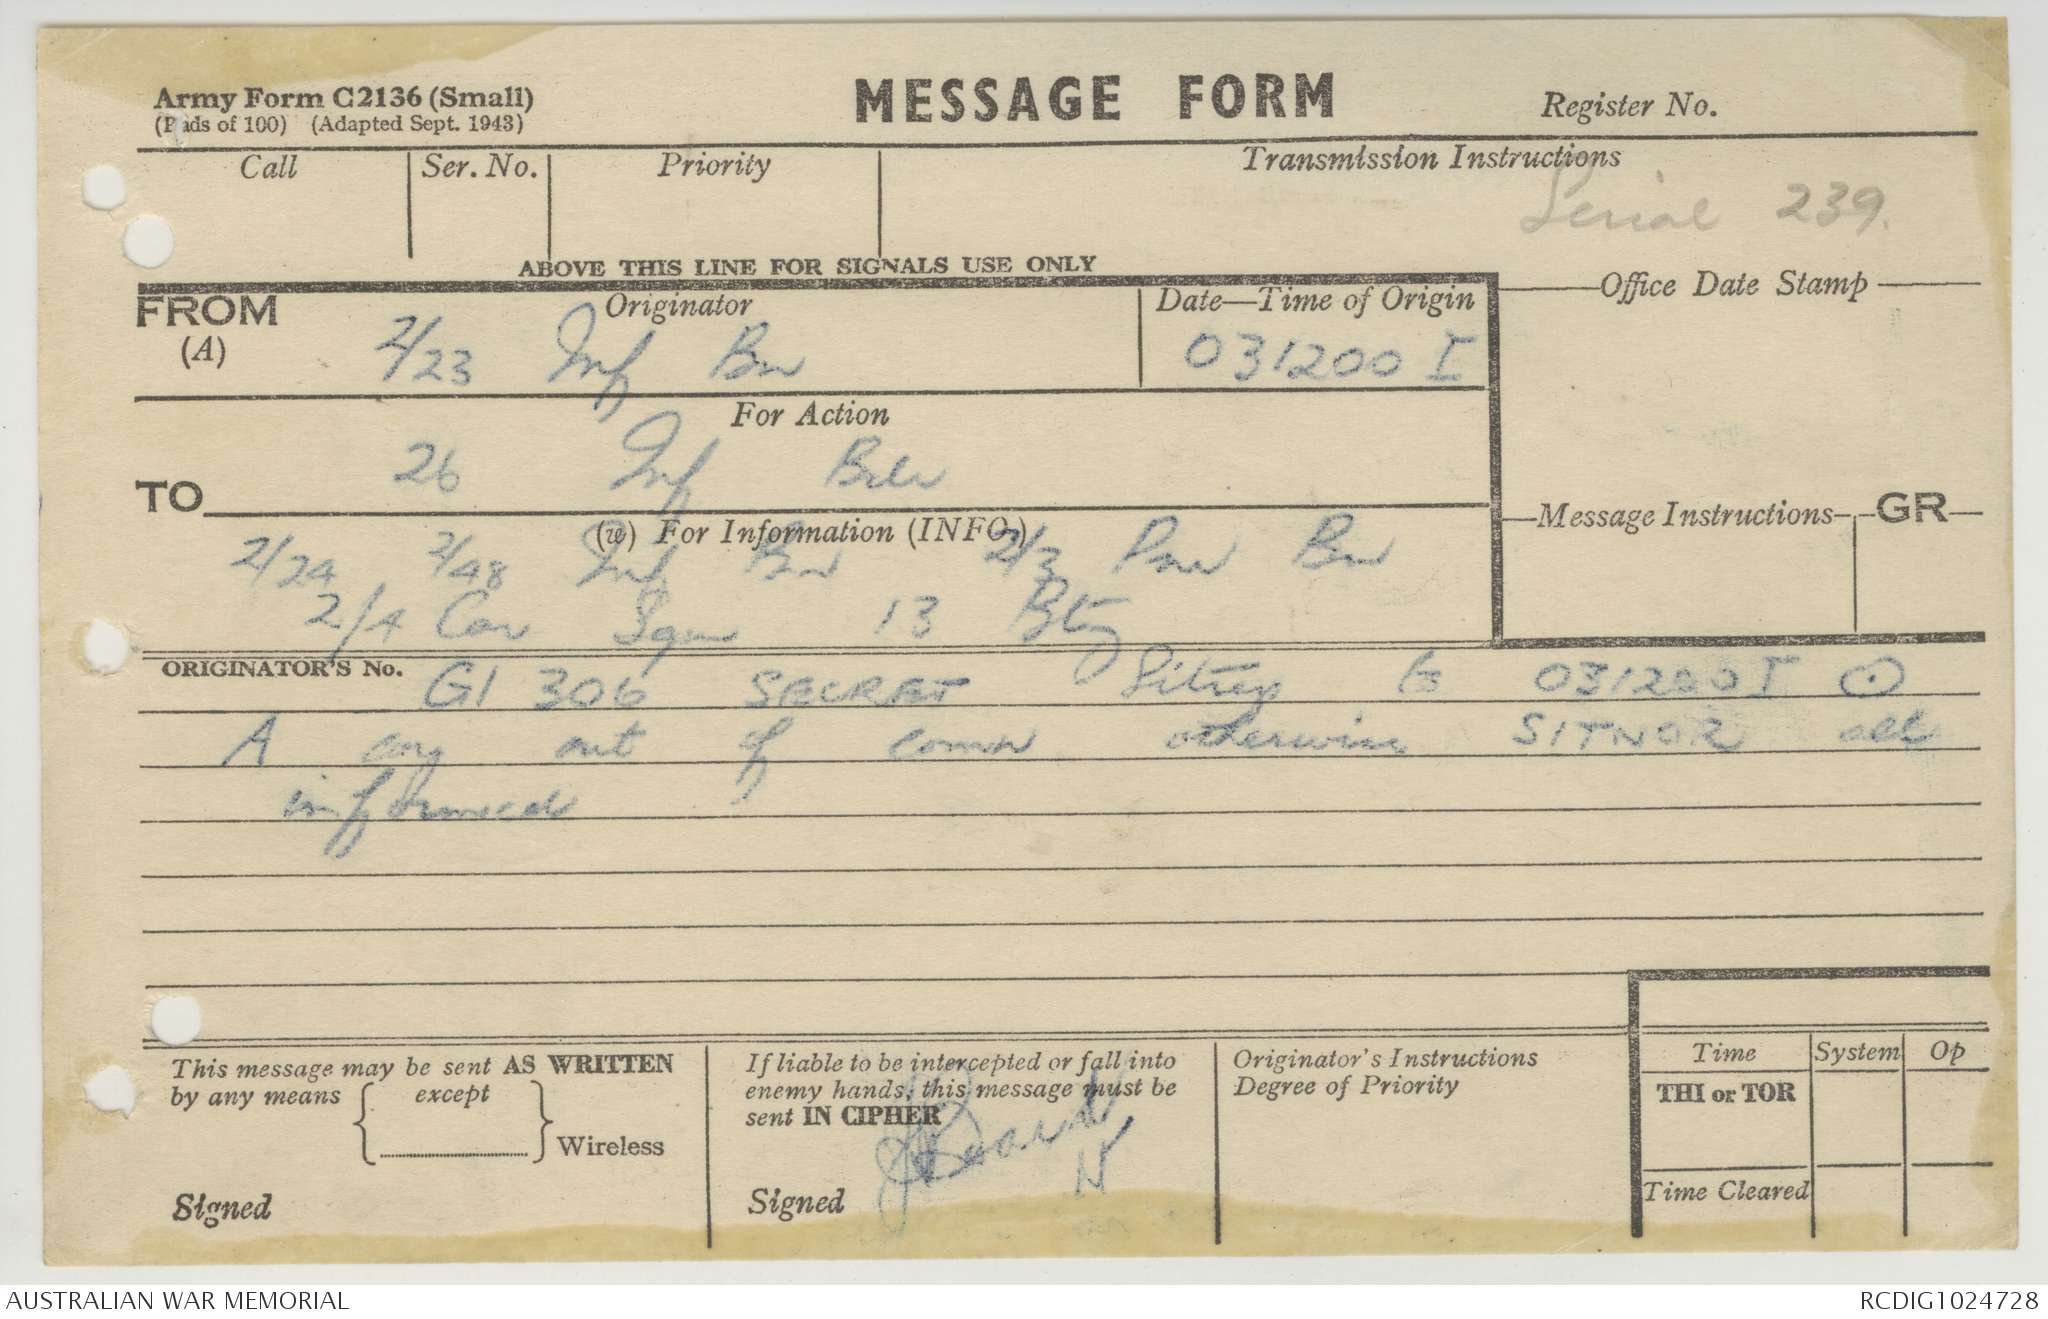 Army Form C2136 (Small)
(Pads of 100) (Adapted Sept. 1943)
MESSAGE FORM
Register No.
Call
Ser. No.
Priority
Transmission Instructions
Serial 239.
ABOVE THIS LINE FOR SIGNALS USE ONLY
FROM
(A)
Originator
2/23 Inf Bn
Date—Time of Origin
031200 I
Office Date Stamp
For Action
26 Inf Bde
TO
(w) For Information (INFO)
2/24 2/48 Inf Bn 2/3 Pnr Bn
2/4 Cav Sqn 13 Bty
Message Instructions
GR
ORIGINATOR'S No.
G1 306 SECRET Sitrep to 031200 I ⊙
A coy out of comn otherwise SITNOR all
informed
This message may be sent AS WRITTEN
by any means { except } Wireless
Signed
If liable to be intercepted or fall into
enemy hands, this message must be
sent IN CIPHER
Signed
Originator's Instructions
Degree of Priority
Time
System
Op
THI or TOR
Time Cleared
AUSTRALIAN WAR MEMORIAL
RCDIG1024728